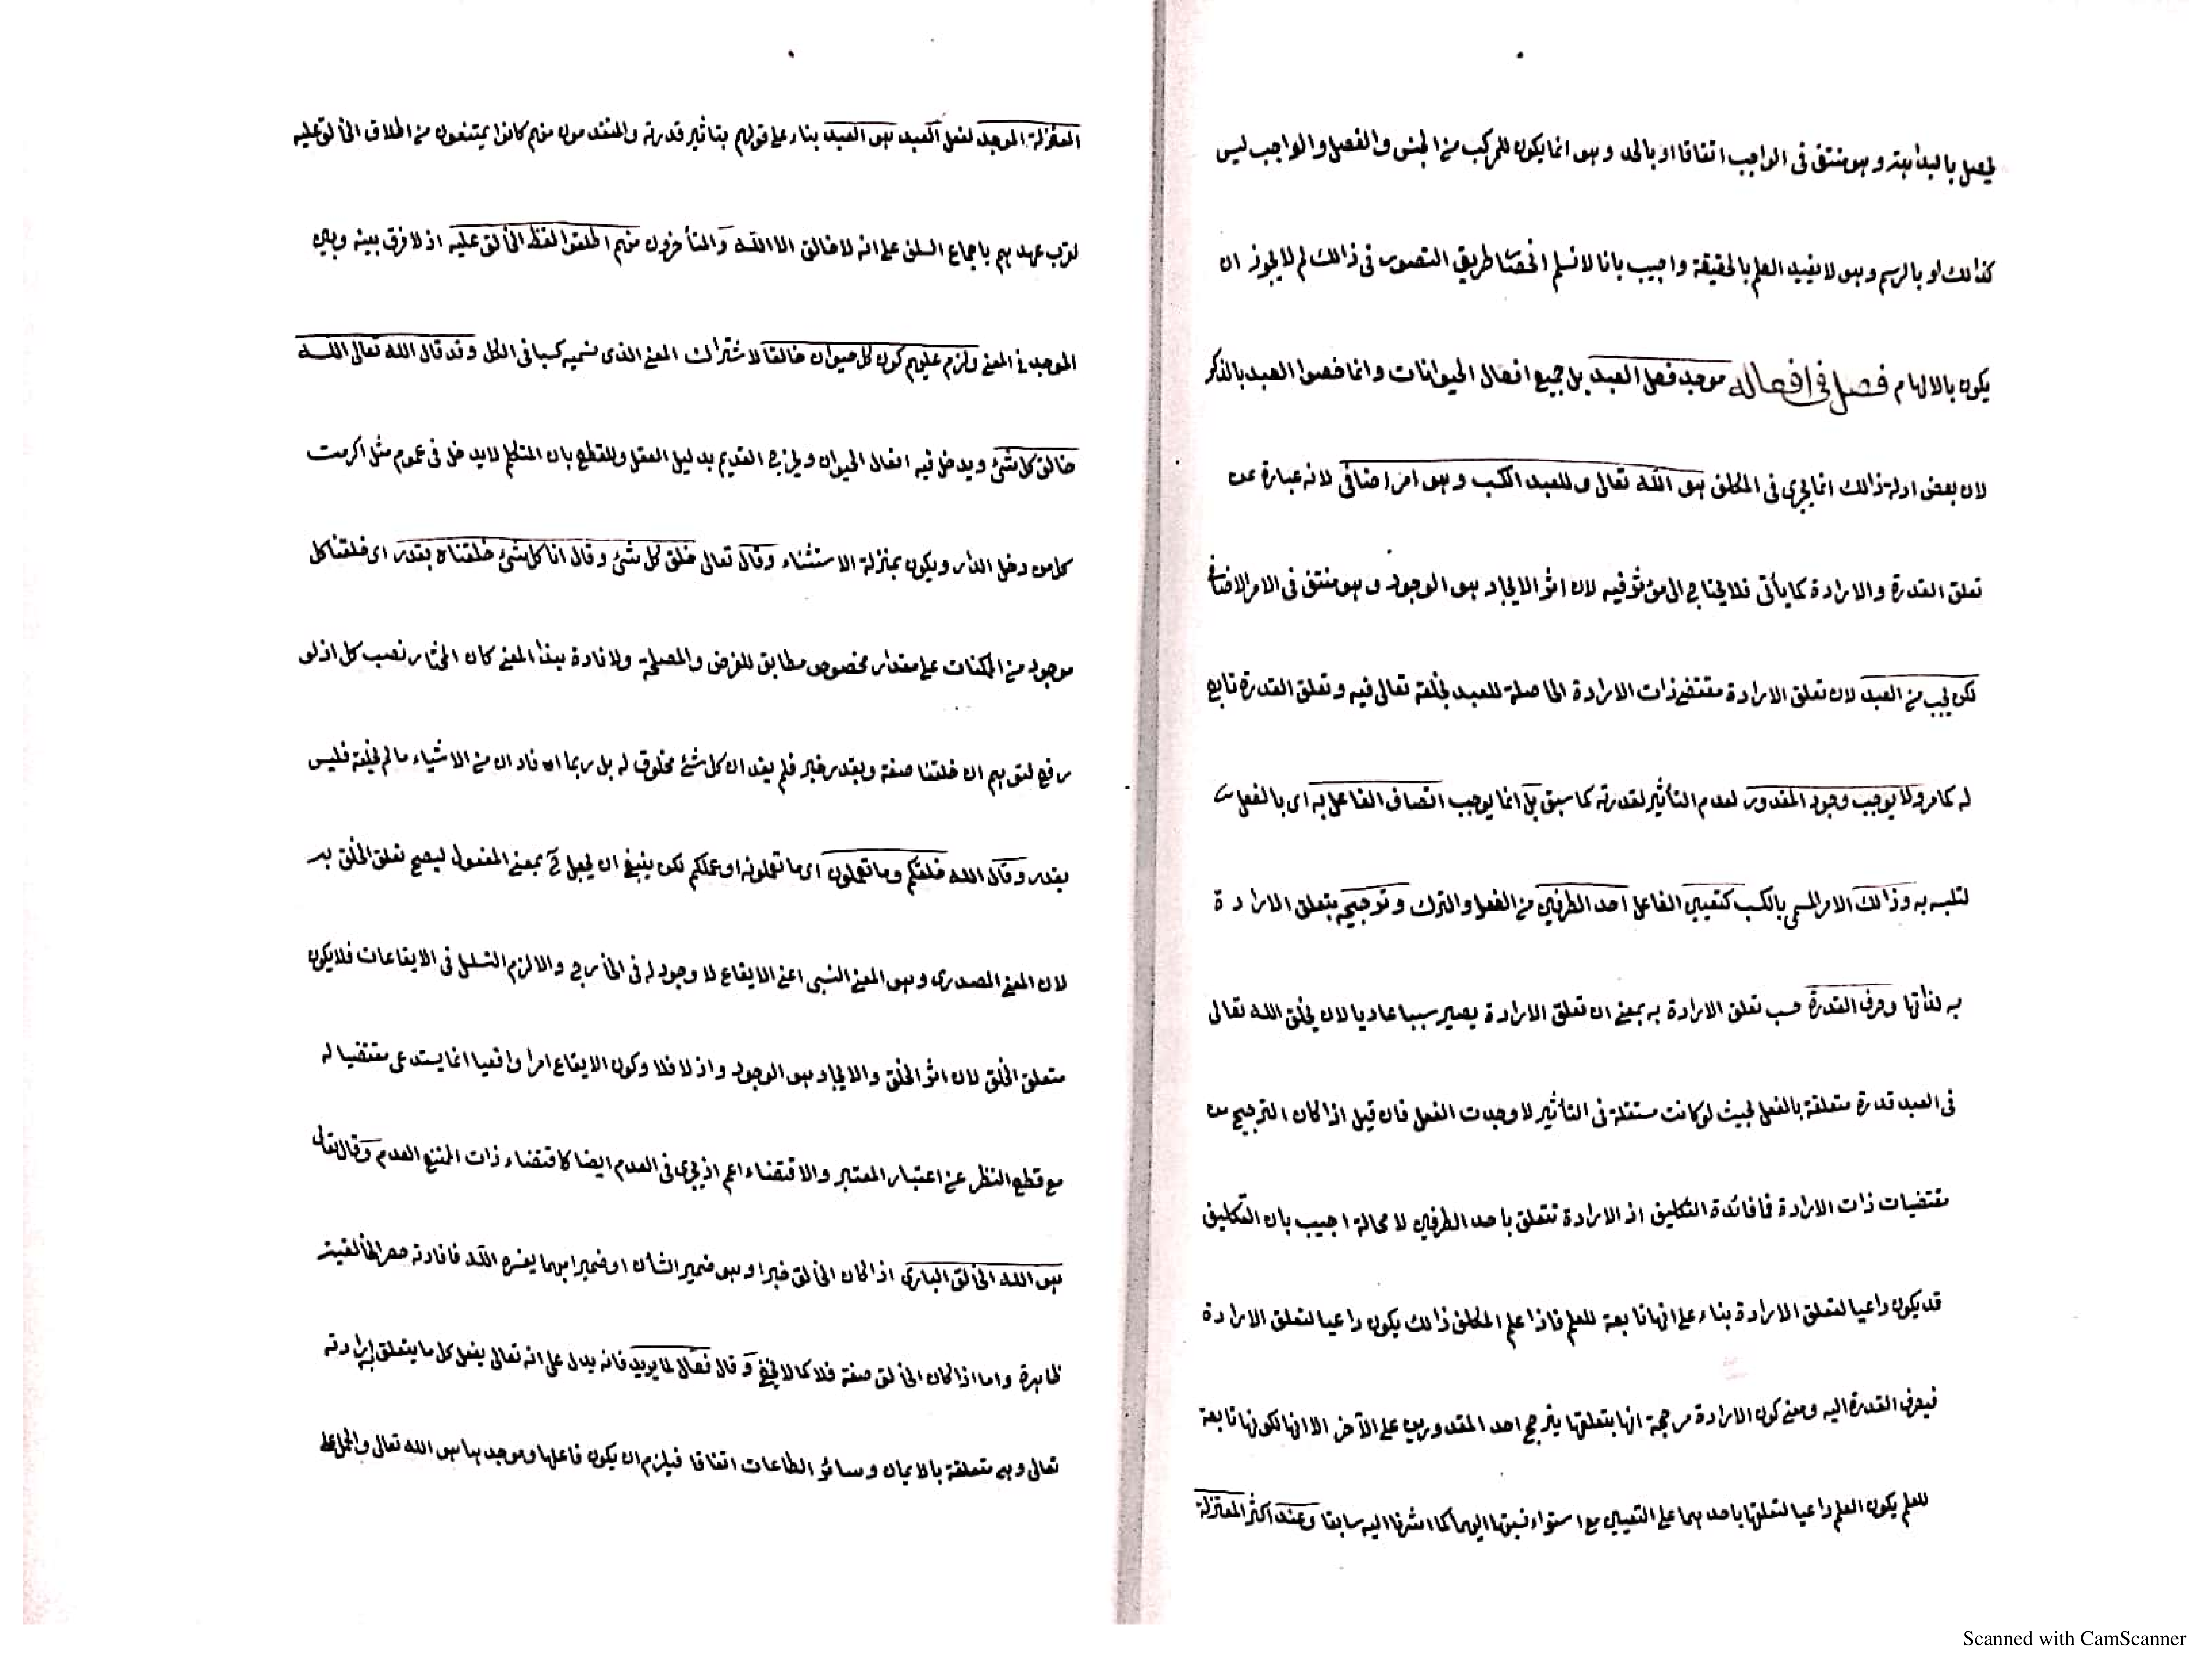 يحصل بالبداهة وهو منتف فى الواجب اتفاقا او بالحد وهو انما يكون للمركب من الجنس والفصل والواجب ليس
كذالك او بالرسم وهو لا يفيد العلم بالحقيقة واجيب بانا لا نسلم انحصار طريق التصور فى ذالك لم لا يجوز ان
يكون بالالهام فصل فى افعاله موجد فعل العبد بل جميع افعال الحيوانات وانما خصوا العبد بالذكر
لان بعض ادلة ذالك انما يجرى فى المكلف هو الله تعالى وللعبد الكسب وهو امر اضافى لانه عبارة عن
تعلق القدرة والارادة كما يأتى فلا يحتاج الى مؤثر فيه لان اثر الايجاد هو الوجود وهو منتف فى الامر الاضافى
لكن يجب من العبد لان تعلق الارادة مقتضى ذات الارادة الحاصلة للعبد بخلقه تعالى فيه وتعلق القدرة تابع
له كامر ولا يوجب وجود المقدور لعدم التأثير لقدرته كما سبق بل انما يوجب اتصاف الفاعل به اى بالفعل
لتلبسه به وذالك الامر المسمى بالكسب كتعيين الفاعل احد الطرفين من الفعل والترك وترجيحه بتعلق الارادة
به لذاتها وصرف القدرة حسب تعلق الارادة به بمعنى ان تعلق الارادة يصير سببا عاديا لان يخلق الله تعالى
فى العبد قدرة متعلقة بالفعل بحيث لو كانت مستقلة فى التأثير لاوجدت الفعل فان قيل اذا كان الترجيح من
مقتضيات ذات الارادة فما فائدة التكليف اذ الارادة تتعلق باحد الطرفين لا محالة اجيب بان التكليف
قد يكون داعيا لتعلق الارادة بناء على انها تابعة للعلم فاذا علم المكلف ذالك يكون داعيا لتعلق الارادة
فيصرف القدرة اليه ومعنى كون الارادة مرجحة انها بتعلقها يترجح احد المقدورين على الآخر الا انها لكونها تابعة
للعلم يكون العلم داعيا لتعلقها باحدهما على التعيين مع استواء نسبتها اليهما كما اشرنا اليه سابقا وعند اكثر المعتزلة
المعتزلة الموجد لفعل العبد هو العبد بناء على قولهم بتاثير قدرته والمتقدمون منهم كانوا يمتنعون من اطلاق الخالق عليه
لقرب عهدهم باجماع السلف على انه لا خالق الا الله والمتأخرون منهم اطلقوا لفظ الخالق عليه اذ لا فرق بينه وبين
الموجد فى المعنى ولزم عليهم كون كل حيوان خالقا لاشتراك المعنى الذى نسميه كسبا فى الكل وقد قال الله تعالى الله
خالق كل شئ ويدخل فيه افعال الحيوان ويخرج القديم بدليل العقل وللقطع بان المتكلم لا يدخل فى عموم مثل اكرمت
كل من دخل الدار ويكون بمنزلة الاستثناء وقال تعالى خلق كل شئ وقال انا كل شئ خلقناه بقدر اى خلقنا كل
موجود من الممكنات على مقدار مخصوص مطابق للغرض والمصلحة ولافادة هذا المعنى كان المختار نصب كل اذ لو
رفع لتوهم ان خلقنا صفة وبقدر خبر فلم يفد ان كل شئ مخلوق له بل ربما افاد ان من الاشياء ما لم يخلقه فليس
بقدر وقال الله خلقكم وما تعملون اى ما تعملونه او عملكم لكن ينبغى ان يجعل ح بمعنى المفعول ليصح تعلق الخلق به
لان المعنى المصدرى وهو المعنى النسبى اعنى الايقاع لا وجود له فى الخارج والا لزم التسلسل فى الايقاعات فلا يكون
متعلق الخلق لان اثر الخلق والايجاد هو الوجود واذ لا فلا وكون الايقاع امرا واقعيا انما يستدعى مقتضيا له
مع قطع النظر عن اعتبار المعتبر والاقتضاء اعم اذ يجرى فى العدم ايضا كاقتضاء ذات الممتنع العدم وقال تعالى
هو الله الخالق البارى اذا كان الخالق خبرا وهو ضمير الشان او ضميرا مبهما يفسره الله فافادته حصر الخالقية
ظاهرة واما اذا كان الخالق صفة فلا كما لا يخفى وقال فعال لما يريد فانه يدل على انه تعالى يفعل كل ما يتعلق به ارادته
تعالى وهى متعلقة بالايمان وسائر الطاعات اتفاقا فيلزم ان يكون فاعلها وموجدها هو الله تعالى والحمل على
Scanned with CamScanner